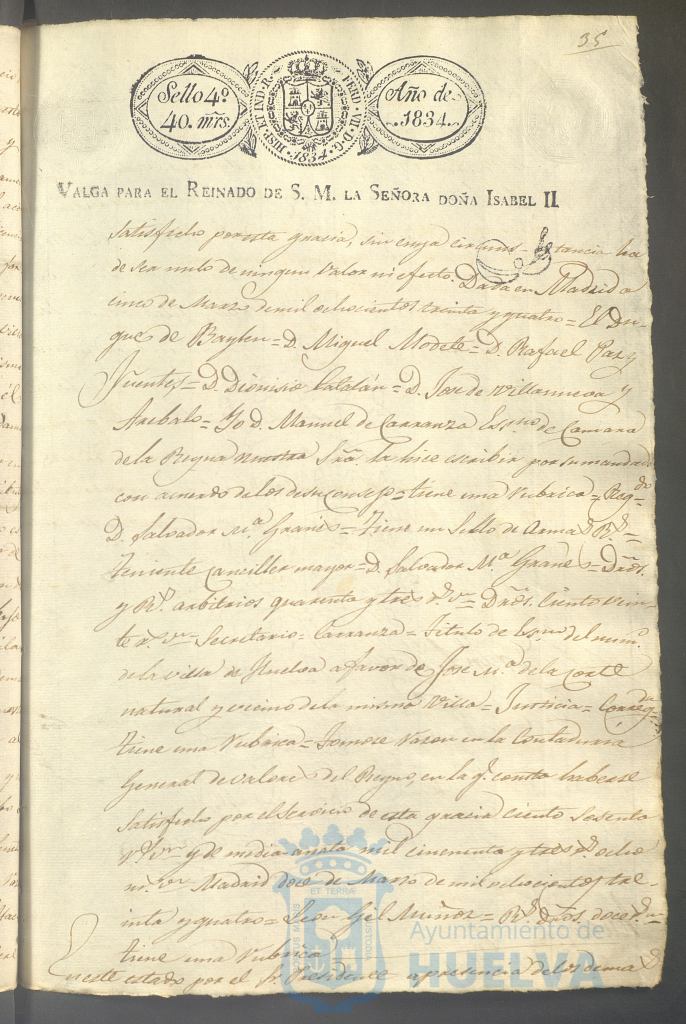 35
Sello 4º
40. mrs.
HISP. ET IND. R. FERD. VII. D. G.
1834
Año de
1834.
VALGA PARA EL REINADO DE S. M. LA SEÑORA DOÑA ISABEL II
satisfecho por esta gracia, sin cuya circuns-tancia ha
de ser nulo de ningun valor ni efecto. Dada en Madrid a
cinco de Marzo de mil ochocientos treinta y quatro = El Du-
que de Baylen = D. Miguel Modet = D. Rafael Paz y
Fuentes = D. Dionisio Catalán = D. Jose de Villanueva y
Arebalo = Yo D. Manuel de Carranza Essno de Camara
de la Reyna nuestra Sra. la hice escribir por su mandado
con acuerdo de los de su Consejo = tiene una rubrica = Regdo
D. Salvador Mª Granés = Tiene un Sello de Armas Rs =
teniente canciller mayor = D. Salvador Mª Granés = Dros.
y Rs. arbitrios quarenta y tres rs. vn = Dros. Ciento vein-
te rs. vn Secretario = Carranza = Titulo de Esno del numº
de la villa de Huelva a favor de Jose Mª de la Corte
natural y vecino de la misma Villa = Justicia = Corregda
tiene una rubrica = Tomose razon en la Contaduria
General de valores del Reyno, en la q.e consta haberse
satisfecho por el servicio de esta gracia ciento sesenta
rs. vn y de media anata mil cincuenta y tres rs. ocho
ms. vn Madrid doce de Marzo de mil ochocientos tre-
inta y quatro = Leon Gil Muñoz = Rs. Dros. doce rs. vn
tiene una rubrica
En este estado por el Sr. Presidente a presencia de los demas
PORTUS MARIS
ET TERRÆ
CUSTODIA
Ayuntamiento de
HUELVA